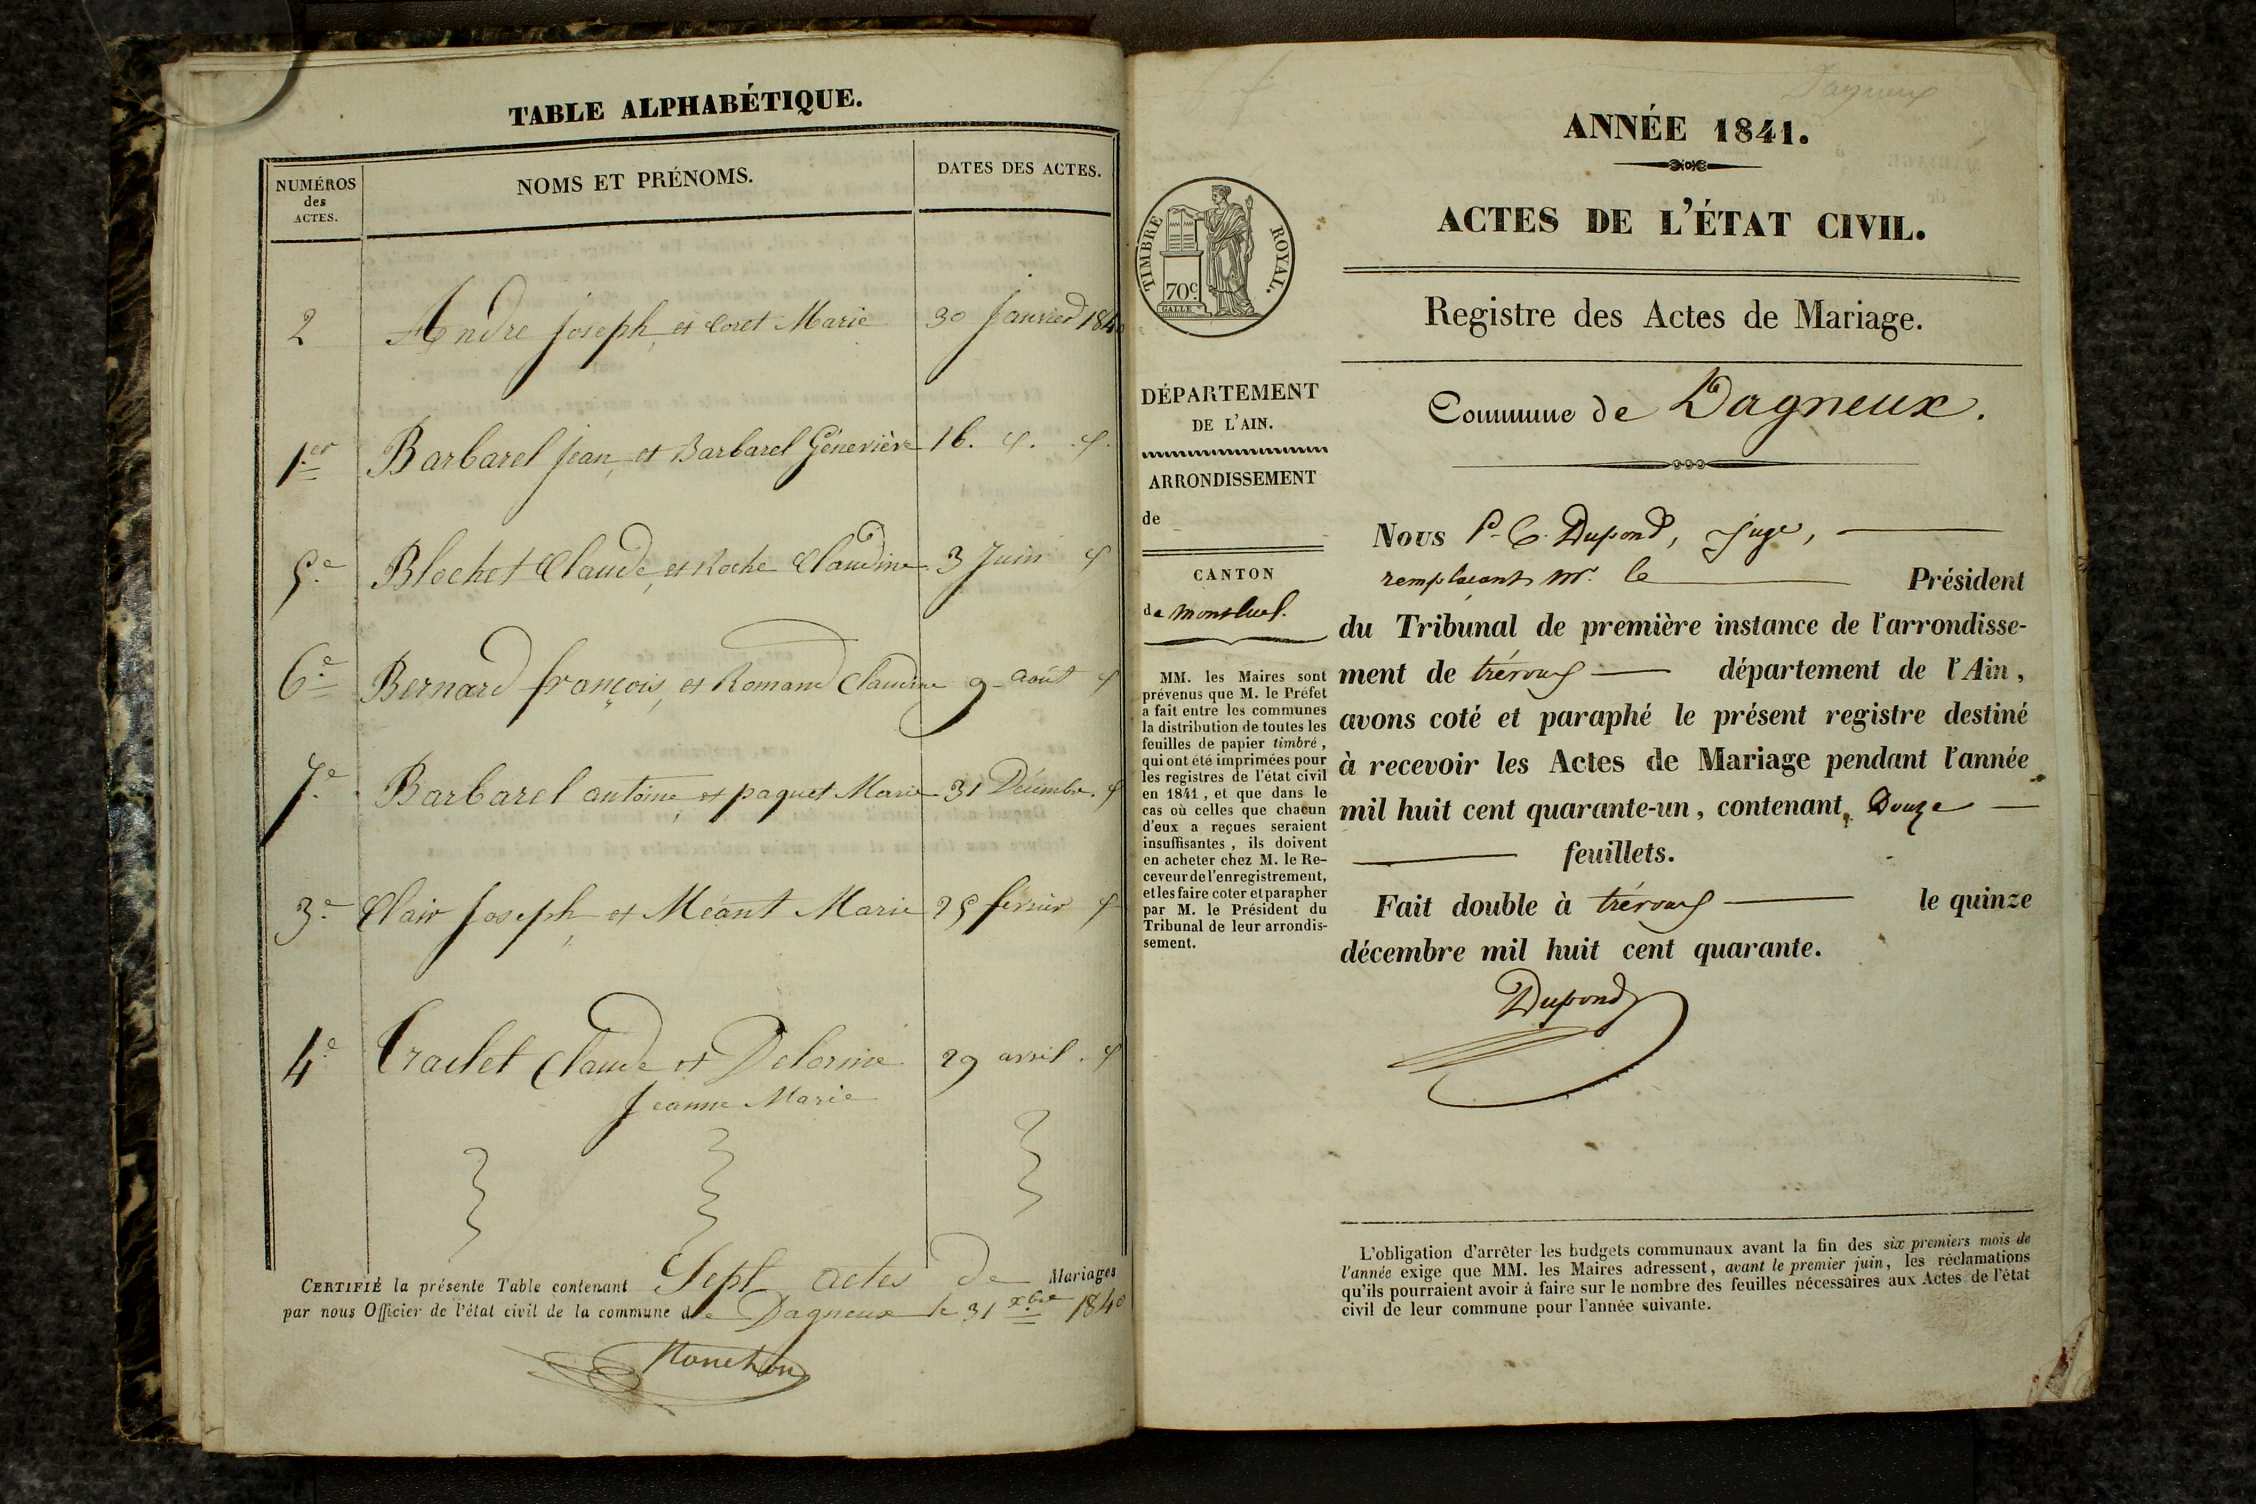 TABLE ALPHABÉTIQUE.
NUMÉROS
des
ACTES.
NOMS ET PRÉNOMS.
DATES DES ACTES.
2 Andre Joseph, et Coret Marie 30 Janvier 1840
1.er Barbarel Jean, et Barbarel Génevière 16.
5.e Blochet Claude, et Roche Claudine 3 Juin
6.e Bernard françois, et Romand Claudine 9 août
7.e Barbarel antoine, et paquet Marie 31 Décembre.
3.e Clair Joseph, et Méant Marie 25 février
4.e Craclet Claude et Delorme 29 avril.
Jeanne Marie
CERTIFIÉ la présente Table contenant Sept actes de Mariages
par nous Officier de l'état civil de la commune de Dagneux le 31 xbre 1840
Dagneux
ANNÉE 1841.
ACTES DE L'ÉTAT CIVIL.
Registre des Actes de Mariage.
Commune de Dagneux.
TIMBRE ROYAL.
70c
DÉPARTEMENT
DE L'AIN.
ARRONDISSEMENT
de
CANTON
de montluel.
MM. les Maires sont
prévenus que M. le Préfet
a fait entre les communes
la distribution de toutes les
feuilles de papier timbré,
qui ont été imprimées pour
les registres de l'état civil
en 1841, et que dans le
cas où celles que chacun
d'eux a reçues seraient
insuffisantes, ils doivent
en acheter chez M. le Re-
ceveur de l'enregistrement,
et les faire coter et parapher
par M. le Président du
Tribunal de leur arrondis-
sement.
Nous P. C. Dupond, Juge,
remplaçant Mr. le Président
du Tribunal de première instance de l'arrondisse-
ment de trévoux département de l'Ain,
avons coté et paraphé le présent registre destiné
à recevoir les Actes de Mariage pendant l'année
mil huit cent quarante-un, contenant Douze
feuillets.
Fait double à trévoux le quinze
décembre mil huit cent quarante.
Dupond
L'obligation d'arrêter les budgets communaux avant la fin des six premiers mois de
l'année exige que MM. les Maires adressent, avant le premier juin, les réclamations
qu'ils pourraient avoir à faire sur le nombre des feuilles nécessaires aux Actes de l'état
civil de leur commune pour l'année suivante.